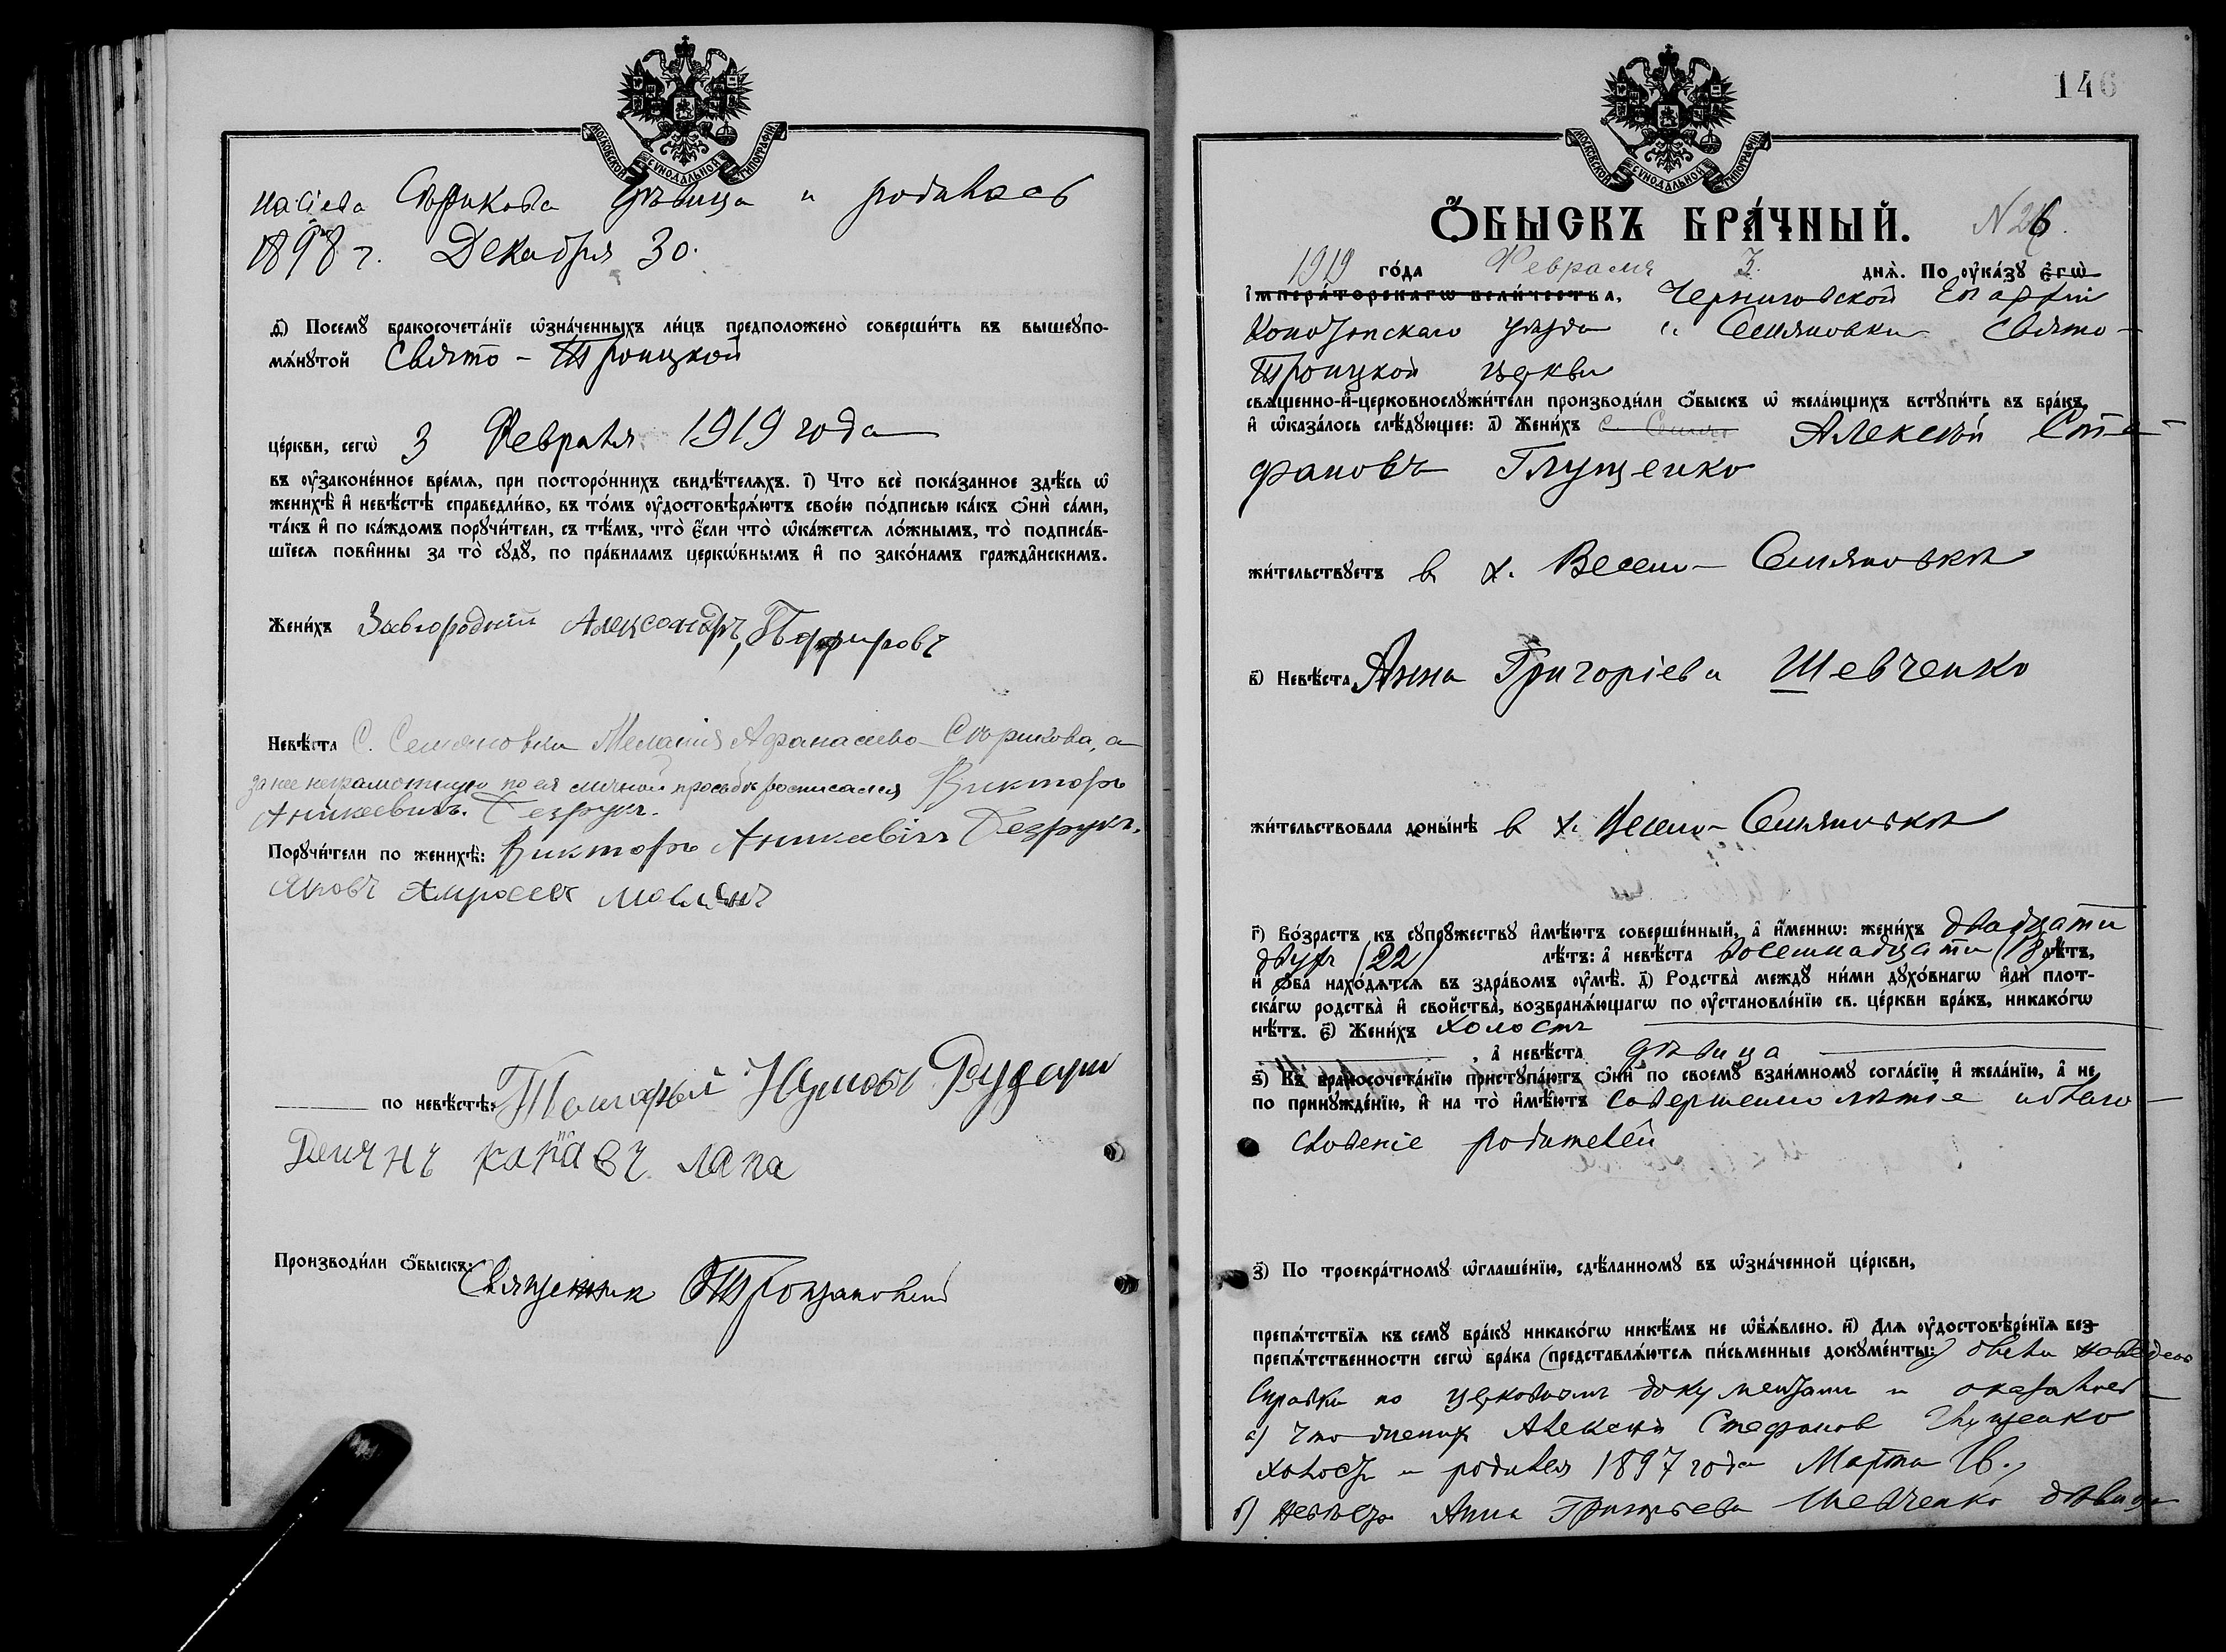 МОСКОВСКОЙ СУНОДАЛЬНОЙ ТИПОГРАФІИ.
насіева Сорикова дѣвица и родилась
1898 г. Декабря 30.
ѳ҃) Посемꙋ̀ бракосочета́нїе ѡ҆зна́ченныхъ ли́цъ предположено̀ соверши́ть въ вышеꙋпо-
мѧ́нꙋтой Свято-Троицкой
це́ркви, сегѡ̀ 3 Февраля 1919 года
въ ᲂу҆законе́нное вре́мѧ, при посторо́ннихъ свидѣ́телѧхъ. і҃) Что всѐ пока́занное здѣ́сь ѡ҆
женихѣ̀ и҆ невѣ́стѣ справедли́во, въ то́мъ ᲂу҆достовѣрѧ́ютъ свое́ю по́дписью ка́къ ѻ҆нѝ са́ми,
та́къ и҆ по ка́ждомъ порꙋчи́тели, съ тѣ́мъ, что̀ є҆́сли что̀ ѡ҆ка́жется ло́жнымъ, то̀ подписа́в-
шїеся пови́нны за то̀ сꙋдꙋ̀, по пра́виламъ церко́внымъ и҆ по зако́намъ гражда́нскимъ.
Жени́хъ Завгородній Александръ, Порфировъ
Невѣ́ста С. Семяновки Меланія Афанасиева Сорикова, а
за нее неграмотную по ея личной просьбѣ росписался Викторъ
Аникеевичъ Безрукъ.
Порꙋчи́тели по женихѣ̀: Викторъ Аникевичъ Безрукъ.
Яковъ
по невѣ́стѣ: Наумовъ
лапа
Производи́ли ѻ҆́быскъ: Священник
146
МОСКОВСКОЙ СУНОДАЛЬНОЙ ТИПОГРАФІИ.
Ѻ҆́БЫСКЪ БРА́ЧНЫЙ. N 26.
1919 го́да Февраля 3. днѧ̀. По ᲂу҆ка́зꙋ є҆гѡ̀
і҆мпера́торскагѡ вели́чества, Черниговской Епархіи
Конотопскаго уѣзда с. Семяновки Свято-
Троицкой церкви
свѧще́нно-и҆-церковнослꙋжи́тели производи́ли ѻ҆́быскъ ѡ҆ жела́ющихъ встꙋпи́ть въ бра́къ,
и҆ ѡ҆каза́лось слѣ́дꙋющее: а҃) Жени́хъ Алексѣй Сте-
фановъ Глущенко
жи́тельствꙋетъ в х. Весело-Семяновкѣ
в҃) Невѣ́ста Анна Григоріева Шевченко
жи́тельствовала доны́нѣ в х. Весело-Семяновкѣ
г҃) Во́зрастъ къ сꙋпрꙋ́жествꙋ и҆мѣ́ютъ соверше́нный, а҆ и҆́меннѡ: жени́хъ двадцати
двухъ (22) лѣ́тъ: а҆ невѣ́ста восемнадцати (18) лѣ́тъ,
и҆ ѻ҆́ба нахо́дѧтсѧ въ здра́вомъ ᲂу҆мѣ̀. д҃) Родства̀ междꙋ̀ ни́ми дꙋхо́внагѡ и҆лѝ плот-
ска́гѡ родства̀ и҆ свойства̀, возбранѧ́ющагѡ по ᲂу҆становле́нїю св. це́ркви бра́къ, никако́гѡ
нѣ́тъ. є҃) Жени́хъ холостъ
, а҆ невѣ́ста дѣвица
ѕ҃) Къ бракосочета́нїю пристꙋпа́ютъ ѻ҆нѝ по своемꙋ̀ взаи́мномꙋ согла́сїю и҆ жела́нїю, а҆ не
по принꙋжде́нїю, и҆ на то̀ и҆мѣ́ютъ совершеннолѣтіе и благо-
словеніе родителей
з҃) По троекра́тномꙋ ѡ҆глаше́нїю, сдѣ́ланномꙋ въ ѡ҆зна́ченной це́ркви,
препѧ́тствїѧ къ семꙋ̀ бра́кꙋ никако́гѡ никѣ́мъ не ѡ҆б̾ѧ́влено. и҃) Для ᲂу҆достовѣре́нїѧ без-
препѧ́тственности сегѡ̀ бра́ка (представлѧ́ютсѧ пи́сьменные докꙋме́нты:) были наведены
справки по церковнымъ документамъ и оказалось
а) что женихъ Алексѣй Стефанов Глущенко
холостъ и родился 1897 года Марта 16.
б) невѣста Анна Григорьева Шевченко дѣвица